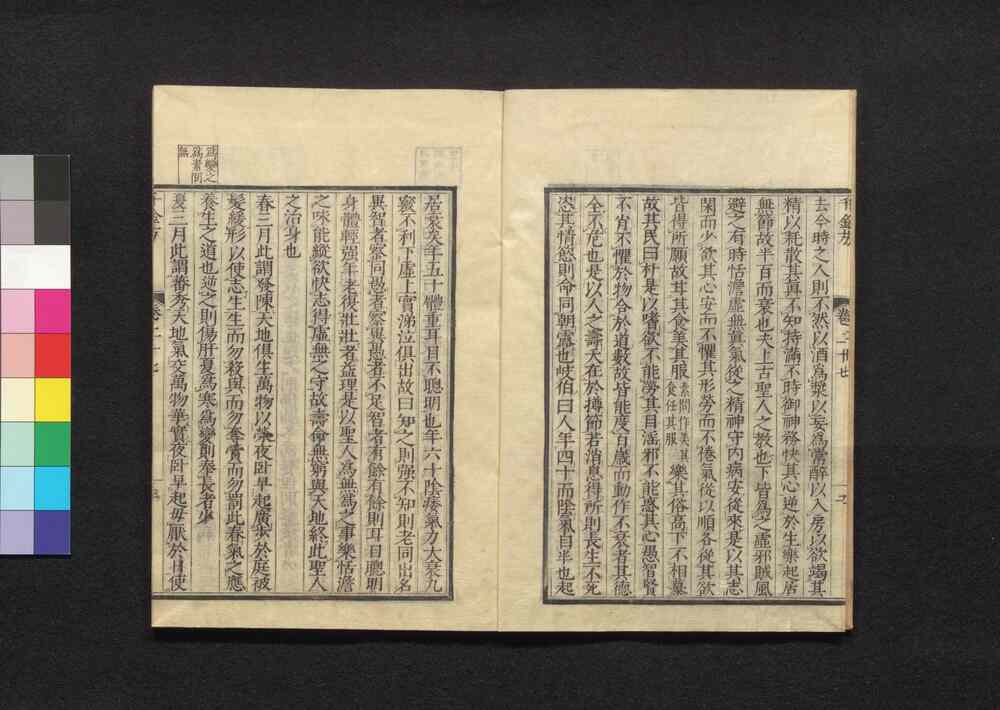 去今時之人則不然以酒爲漿以妄爲常醉以入房以欲竭其
精以耗散其眞不知持滿不時御神務快其心逆於生樂起居
無節故半百而衰也夫上古聖人之教也下皆爲之虛邪賊風
避之有時恬澹虛無眞氣從之精神守内病安從來是以其志
閑而少欲其心安而不懼其形勞而不倦氣從以順各從其欲
皆得所願故甘其食美其服素問作美其食任其服樂其俗高下不相慕
故其民曰朴是以嗜欲不能勞其目淫邪不能惑其心愚智賢
不肖不懼於物合於道數故皆能度百歲而動作不衰者其德
全不危也是以人之壽夭在於撙節若消息得所則長生不死
恣其情慾則命同朝露也岐伯曰人年四十而陰氣自半也起
居衰矣年五十體重耳目不聰明也年六十陰痿氣力大衰九
竅不利下虛上實涕泣俱出故曰知之則强不知則老同出名
異智者察同愚者察異愚者不足智者有餘有餘則耳目聰明
身體輕强年老復壯壯者益理是以聖人爲無爲之事樂恬澹
之味能縱欲快志得虛無之守故壽命無窮與天地終此聖人
之治身也
春三月此謂發陳天地俱生萬物以榮夜卧早起廣步於庭被
髮緩形以使志生生而勿殺與而勿奪賞而勿罰此春氣之應
養生之道也逆之則傷肝夏爲寒爲變則奉長者少
爲變之
爲素問
無
夏三月此謂蕃秀天地氣交萬物華實夜卧早起毋厭於日使
卷二十七